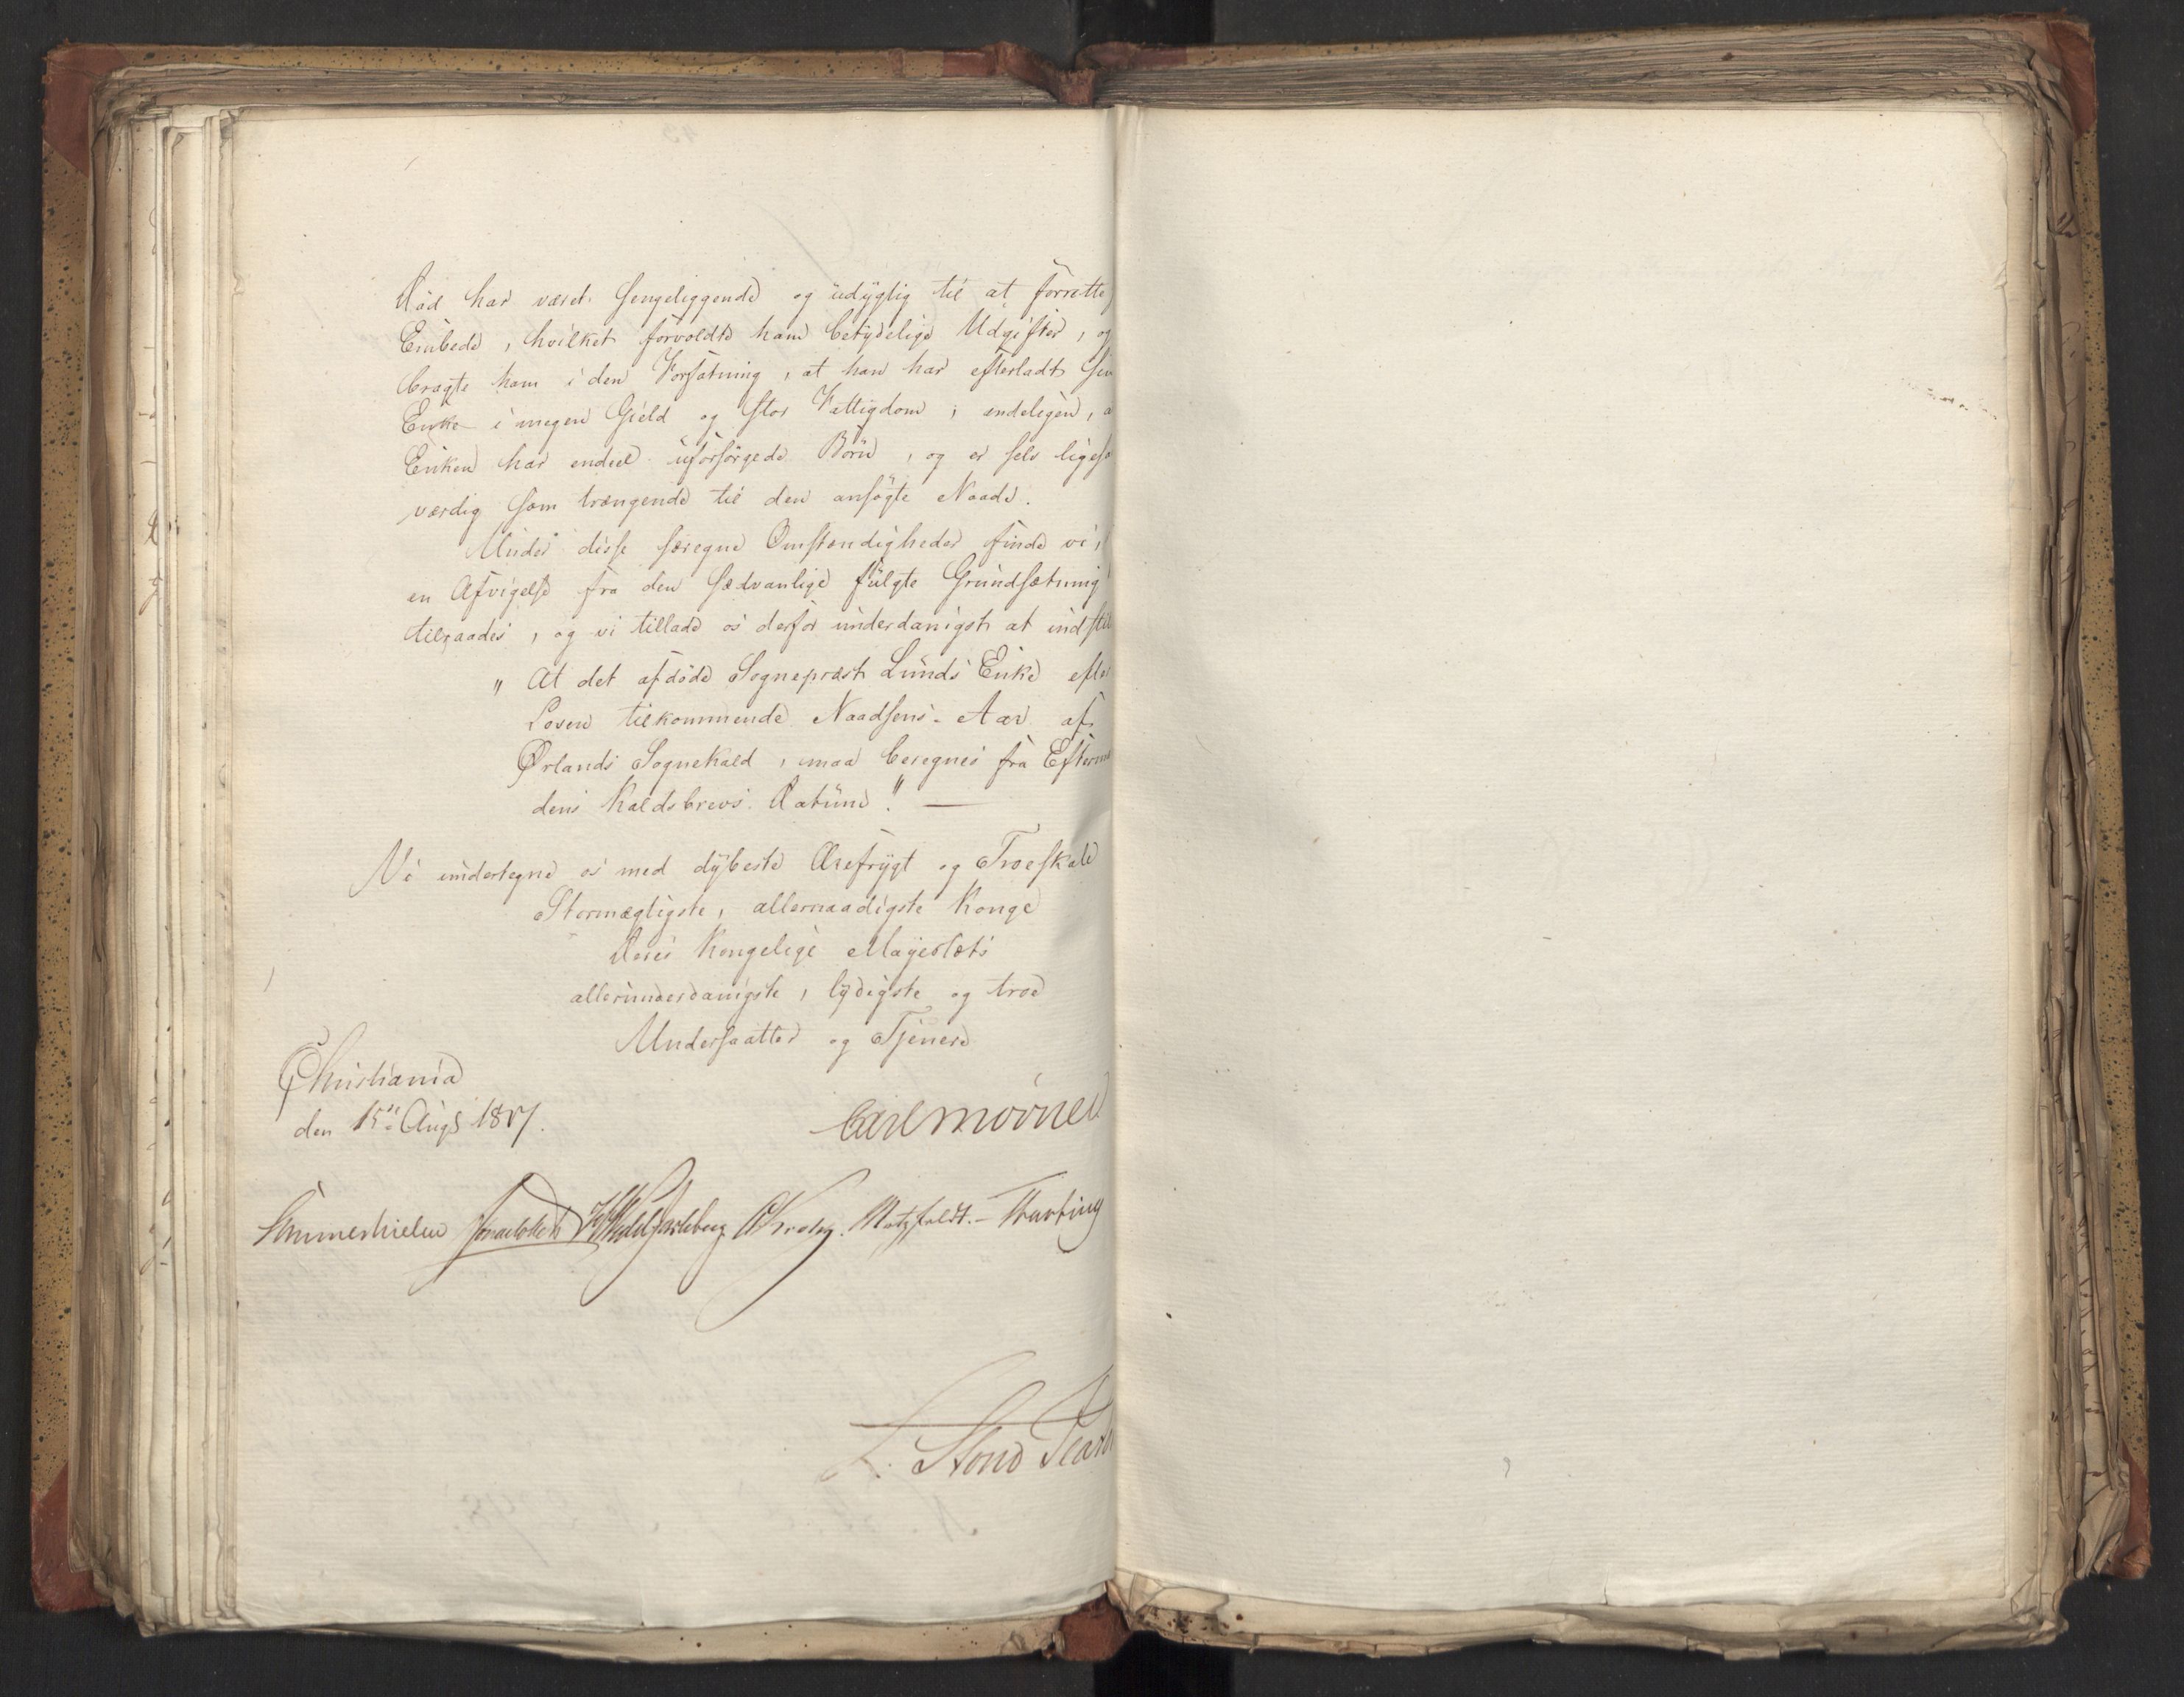 Død har været sengeliggende og udygtig til at forrette
Embede, hvilket forvoldte ham betydelige Udgifter, og
bragte ham i den Forfatning, at han har efterladt sin
Enke i megen Gield og stor Fattigdom; endeligen, a
Enken har endeel uforsørgede Børn, og er selv ligesa
værdig som trængende til den ansøgte Naade.
Under disse særegne Omstændigheder finde vi,
en Afvigelse fra den sædvanlige fulgte Grundsætning
tilraades, og vi tillade os derfor underdanigst at indstil
"At det afdøde Sognepræst Lunds Enke efter
Loven tilkommende Naadsens-Aar af
Ørlands Sognekald, maa beregnes fra Efterma
dens Kaldsbrevs Datum." —
Vi undertegne os med dybeste Ærefrygt og Troeskab
Stormægtigste, allernaadigste Konge
Deres Kongelige Majestæts
allerunderdanigste, lydigste og troe
Undersaatter og Tjenere
Christiania
den 15de Augs 1817.
Carl Mörner
Sommerhielm JHWedel Jarlsberg CKrohg. Motzfeldt. – Thaarting
L. Stoud Plato